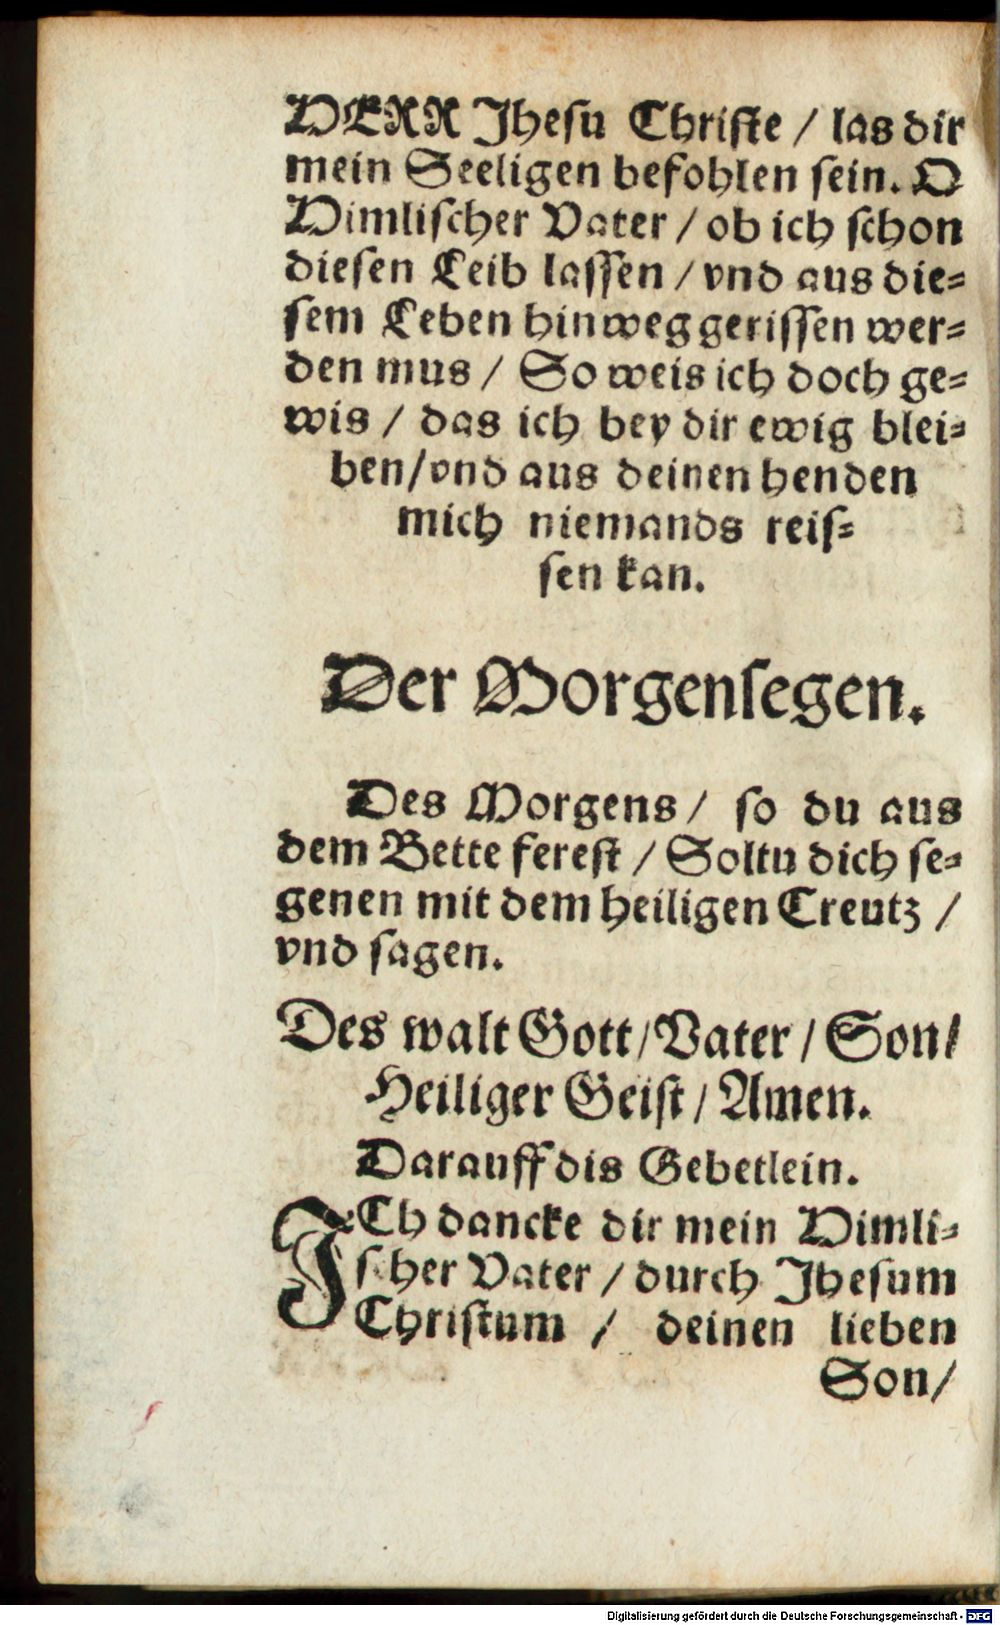 HERR Jhesu Christe / las dir
mein Seeligen befohlen sein. O
Himlischer Vater / ob ich schon
diesen Leib lassen / vnd aus die⸗
sem Leben hinweg gerissen wer⸗
den mus / So weis ich doch ge⸗
wis / das ich bey dir ewig blei⸗
ben/vnd aus deinen henden
mich niemands reis⸗
sen kan.
Der Morgensegen.
Des Morgens / so du aus
dem Bette ferest / Soltu dich se⸗
genen mit dem heiligen Creutz /
vnd sagen.
Des walt Gott/Vater / Son/
Heiliger Geist / Amen.
Darauff dis Gebetlein.
ICh dancke dir mein Himli⸗
scher Vater / durch Jhesum
Christum / deinen lieben
Son/
Digitalisierung gefördert durch die Deutsche Forschungsgemeinschaft - DFG